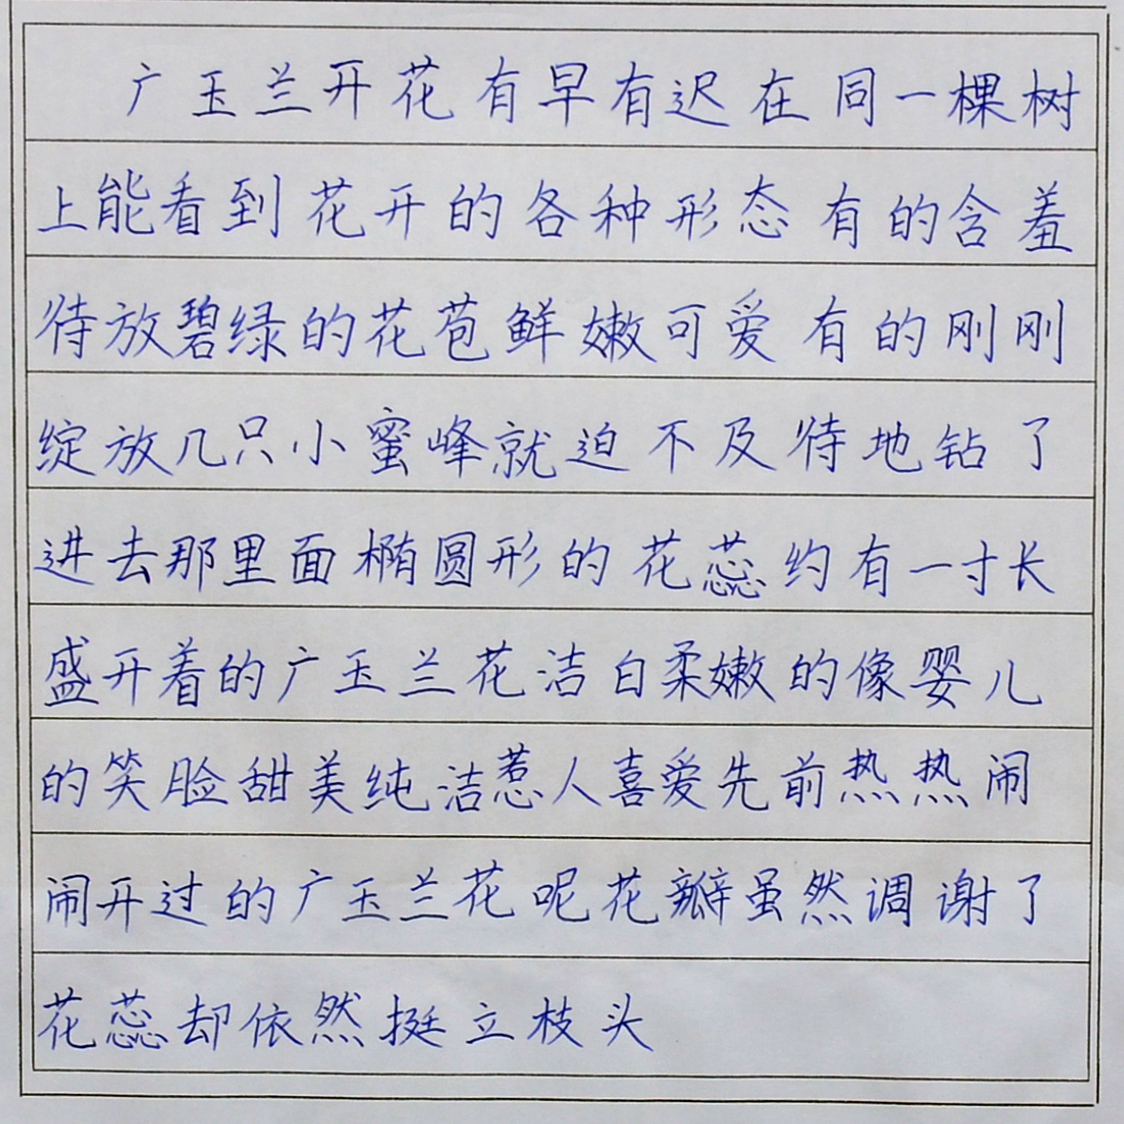 广玉兰开花有早有迟在同一棵树
上能看到花开的各种形态有的含羞
待放碧绿的花苞鲜嫩可爱有的刚刚
绽放几只小蜜峰就迫不及待地钻了
进去那里面椭圆形的花蕊约有一寸长
盛开着的广玉兰花洁白柔嫩的像婴儿
的笑脸甜美纯洁惹人喜爱先前热热闹
闹开过的广玉兰花呢花瓣虽然调谢了
花蕊却依然挺立枝头